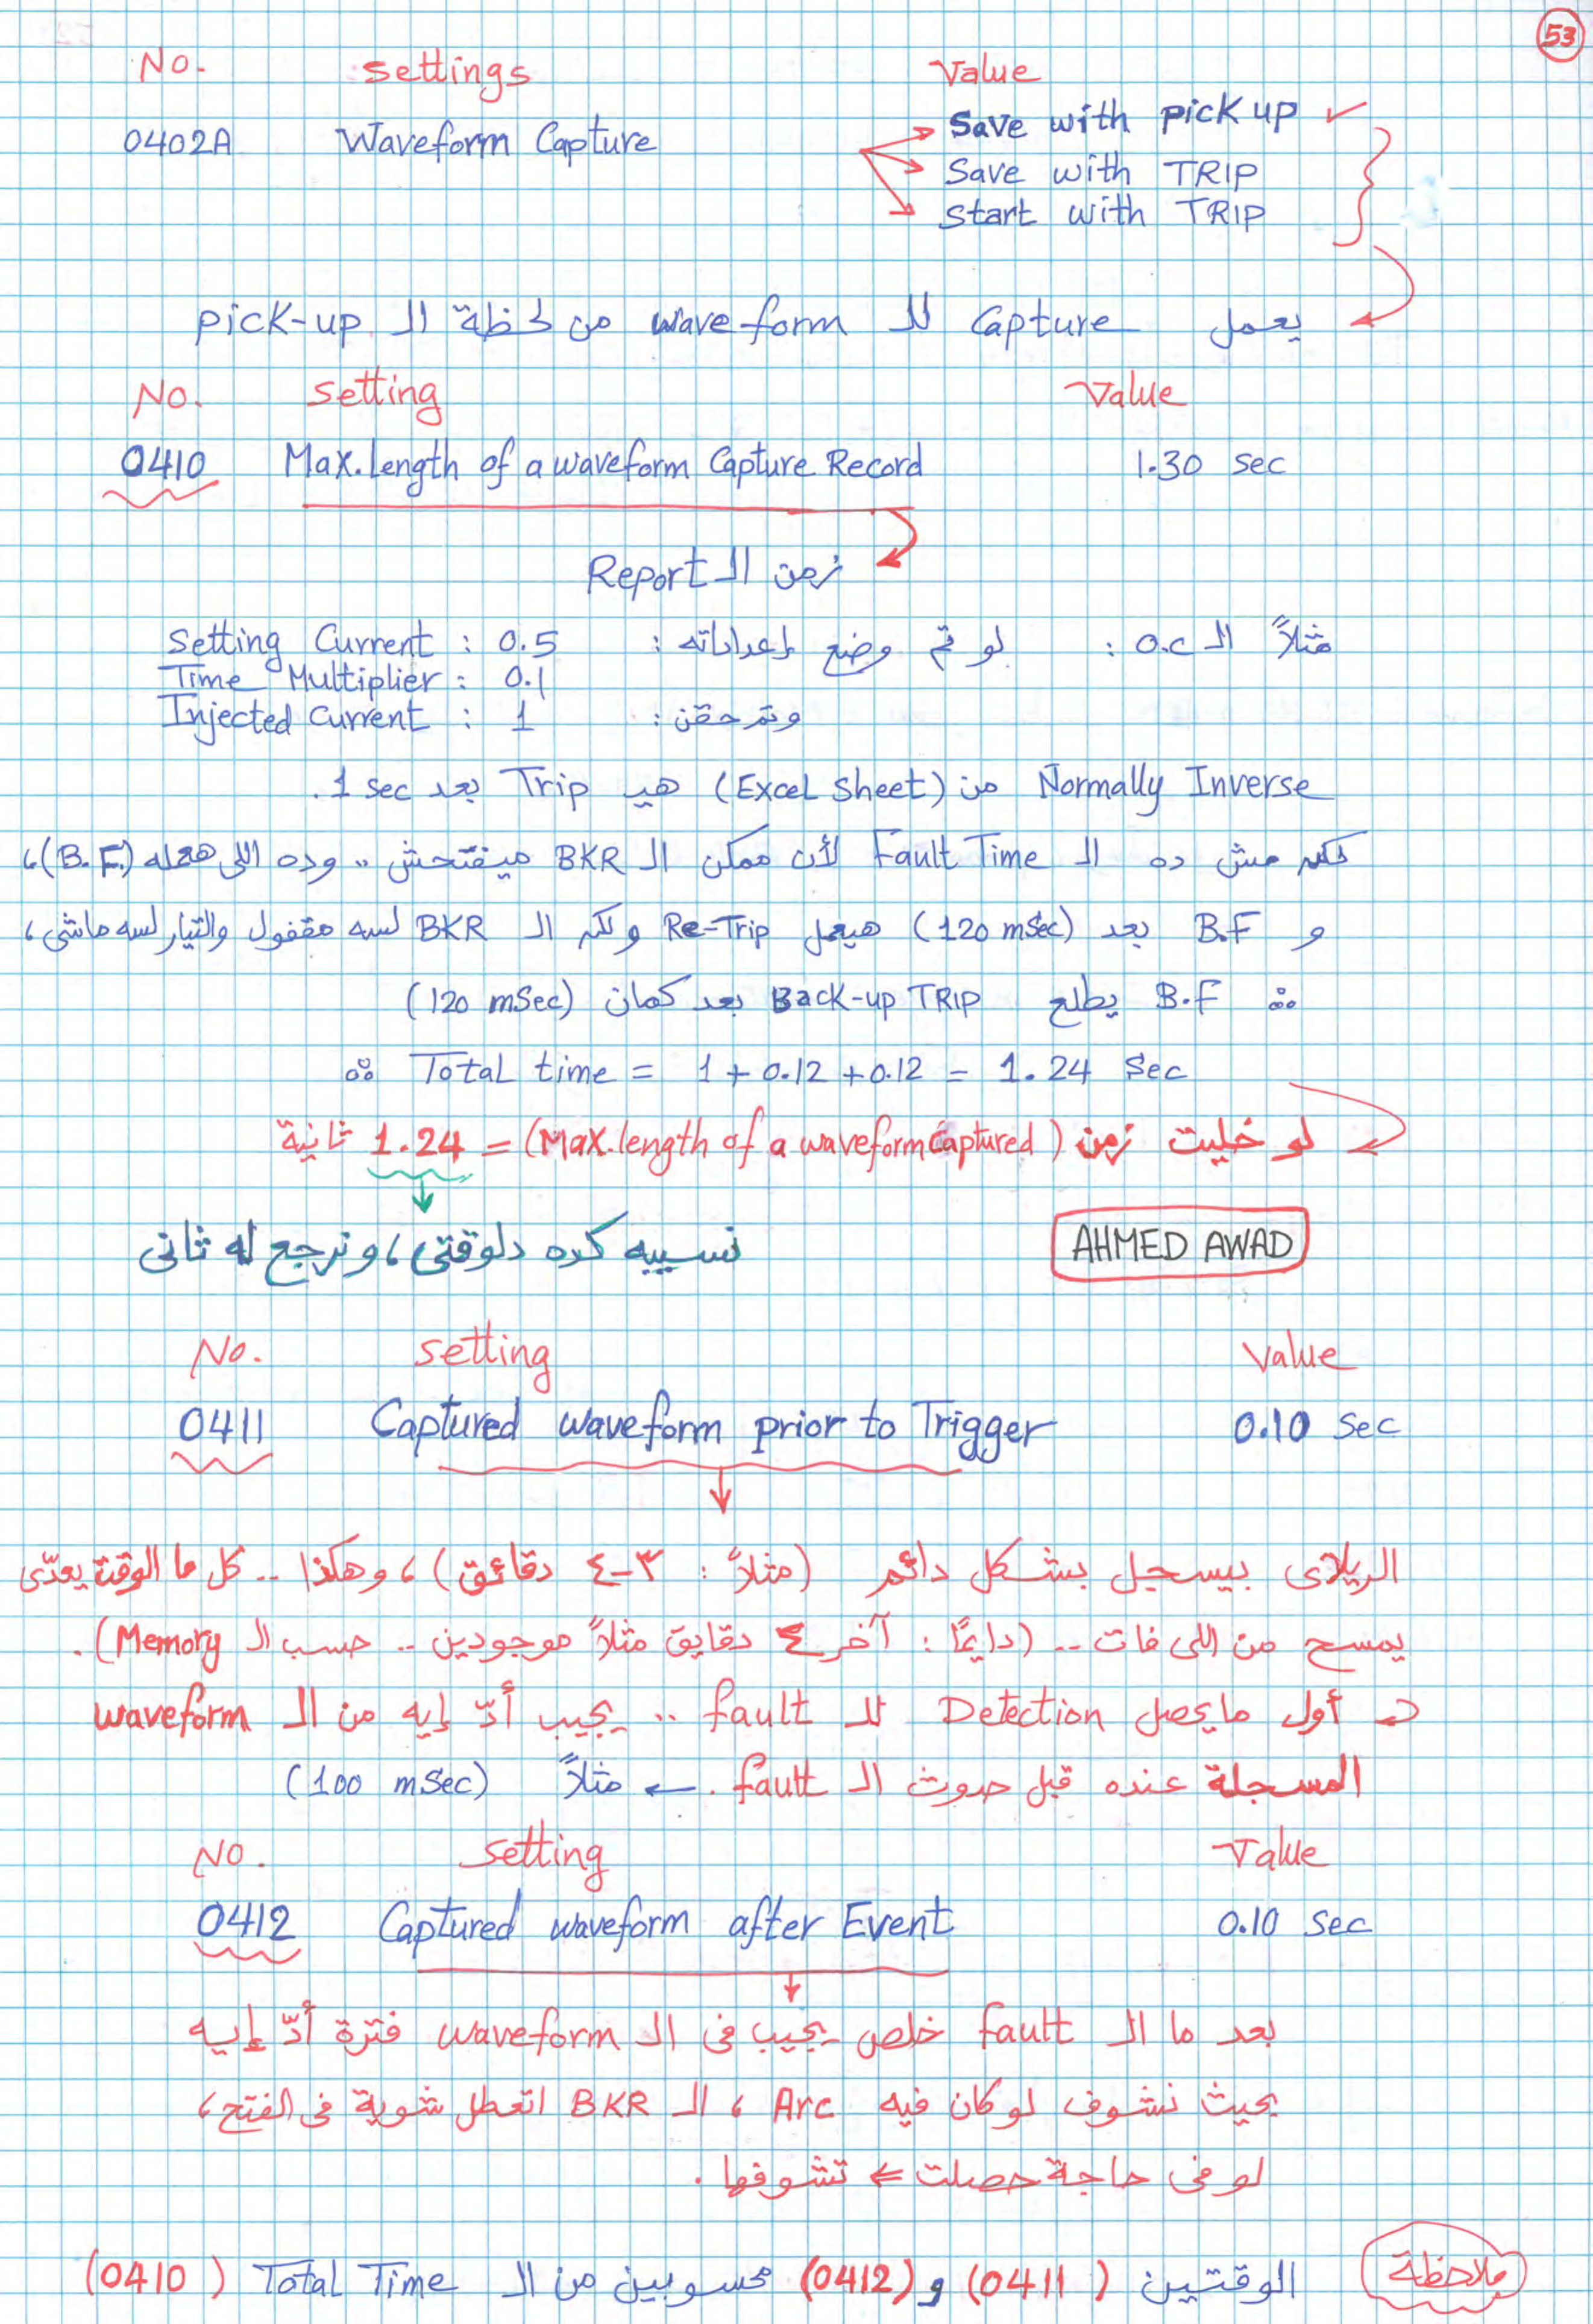 53
No. settings Value
0402A Waveform Capture Save with pick up ✓
Save with TRIP
Start with TRIP
يعمل Capture للـ wave form من لحظة الـ pick-up
No. setting Value
0410 Max. length of a waveform Capture Record 1.30 sec
زمن الـ Report
مثلاً الـ O.C : لو تم وضع إعداداته : Setting Current : 0.5
Time Multiplier : 0.1
وتم حقن : Injected Current : 1
Normally Inverse من (Excel Sheet) هيـ Trip بعد 1 sec .
لكن مش ده الـ Fault Time لأن ممكن الـ BKR ميفتحش .. وده اللى هعمله (B.F.)،
و B.F بعد (120 mSec) هيعمل Re-Trip ولكن الـ BKR لسه مقفول والتيار لسه ماشى،
∴ B.F يطلع Back-up TRIP بعد كمان (120 mSec)
∴ Total time = 1 + 0.12 + 0.12 = 1.24 Sec
لو خليت زمن (Max. length of a waveform Captured) = 1.24 ثانية
نسيبه كده دلوقتى، ونرجع له ثانى
AHMED AWAD
No. setting Value
0411 Captured waveform prior to Trigger 0.10 Sec
الريلاى بيسجل بشكل دائم (مثلاً : ٣-٤ دقائق)، وهكذا .. كل ما الوقت يعدّى
يمسح من اللى فات .. (دايمًا : آخر ٤ دقايق مثلاً موجودين .. حسب الـ Memory).
أول ما يحصل Detection للـ fault .. يجيب أدّ إيه من الـ waveform
المسجلة عنده قبل حدوث الـ fault . ← مثلاً (100 mSec)
No. setting Value
0412 Captured waveform after Event 0.10 Sec
بعد ما الـ fault خلص يجيب فى الـ waveform فترة أدّ إيه
بحيث نشوف لو كان فيه Arc ، الـ BKR اتعطل شوية فى الفتح،
لو فى حاجة حصلت ⇐ تشوفها .
ملاحظة الوقتين (0411) و (0412) محسوبين من الـ Total Time (0410)